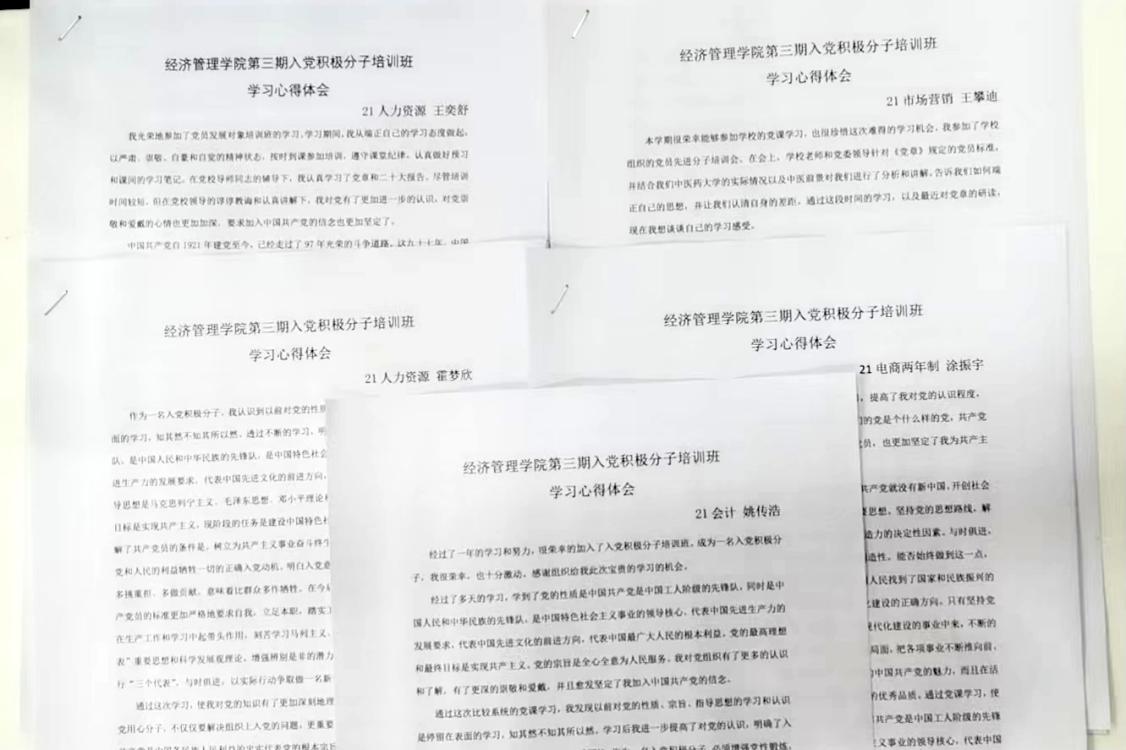 经济管理学院第三期入党积极分子培训班
学习心得体会
21 人力资源 王奕舒
我光荣地参加了党员发展对象培训班的学习,学习期间,我从端正自己的学习态度做起,
以严肃、崇敬、自豪和自觉的精神状态,按时到课参加培训,遵守课堂纪律,认真做好预习
和课间的学习笔记。在党校导师同志的辅导下,我认真学习了党章和二十大报告。尽管培训
时间较短,但在党校领导的谆谆教诲和认真讲解下,我对党有了更加进一步的认识,对党崇
敬和爱戴的心情也更加加深,要求加入中国共产党的信念也更加坚定了。
中国共产党自 1921 年建党至今,已经走过了 97 年光荣的斗争道路。这九十七年,中国
经济管理学院第三期入党积极分子培训班
学习心得体会
21 市场营销 王攀迪
本学期很荣幸能够参加学校的党课学习,也很珍惜这次难得的学习机会。我参加了学校
组织的党员先进分子培训会。在会上,学校老师和党委领导针对《党章》规定的党员标准,
并结合我们中医药大学的实际情况以及中医前景对我们进行了分析和讲解,告诉我们如何端
正自己的思想,并让我们认清自身的差距。通过这段时间的学习,以及最近对党章的研读,
现在我想谈谈自己的学习感受。
经济管理学院第三期入党积极分子培训班
学习心得体会
21 人力资源 霍梦欣
作为一名入党积极分子,我认识到以前对党的性质
面的学习,知其然不知其所以然,透过不断的学习,明
队,是中国人民和中华民族的先锋队,是中国特色社会
进生产力的发展要求,代表中国先进文化的前进方向,
导思想是马克思列宁主义、毛泽东思想、邓小平理论和
目标是实现共产主义,现阶段的任务是建设中国特色社
解了共产党员的条件是,树立为共产主义事业奋斗终生
党和人民的利益牺牲一切的正确入党动机。明白入党意
多挑重担、多做贡献,意味着比群众多作牺牲。在今后
产党员的标准更加严格地要求自我,立足本职,踏实工
在生产工作和学习中起带头作用,刻苦学习马列主义、
表"重要思想和科学发展观理论,增强辨别是非的潜力
行"三个代表",与时俱进,以实际行动争取做一名新
通过这次学习,使我对党的知识有了更加深刻地理
党用心分子,不仅仅要解决组织上入党的问题,更重要
经济管理学院第三期入党积极分子培训班
学习心得体会
21 电商两年制 涂振宇
,提高了我对党的认识程度,
的党是个什么样的党,共产党
员,也更加坚定了我为共产主
共产党就没有新中国,开创社会
思想,坚持党的思想路线,解
造力的决定性因素。与时俱进,
造性。能否始终做到这一点,
人民找到了国家和民族振兴的
建设的正确方向。只有坚持党
代化建设的事业中来,不断的
局面,把各项事业不断推向前,
中国共产党的魅力,而且在活
的优秀品质。通过党课学习,使
共产党是中国工人阶级的先锋
主义事业的领导核心,代表中国
经济管理学院第三期入党积极分子培训班
学习心得体会
21 会计 姚传浩
经过了一年的学习和努力,很荣幸的加入了入党积极分子培训班,成为一名入党积极分
子,我很荣幸,也十分激动,感谢组织给我此次宝贵的学习的机会。
经过了多天的学习,学到了党的性质是中国共产党是中国工人阶级的先锋队,同时是中
国人民和中华民族的先锋队,是中国特色社会主义事业的领导核心,代表中国先进生产力的
发展要求,代表中国先进文化的前进方向,代表中国最广大人民的根本利益,党的最高理想
和最终目标是实现共产主义。党的宗旨是全心全意为人民服务。我对党组织有了更多的认识
和了解,有了更深的崇敬和爱戴,并且愈发坚定了我加入中国共产党的信念。
通过这次比较系统的党课学习,我发现以前对党的性质、宗旨、指导思想的学习和认识
是停留在表面的学习,知其然不知其所以然,学习后我进一步提高了对党的认识,明确了入